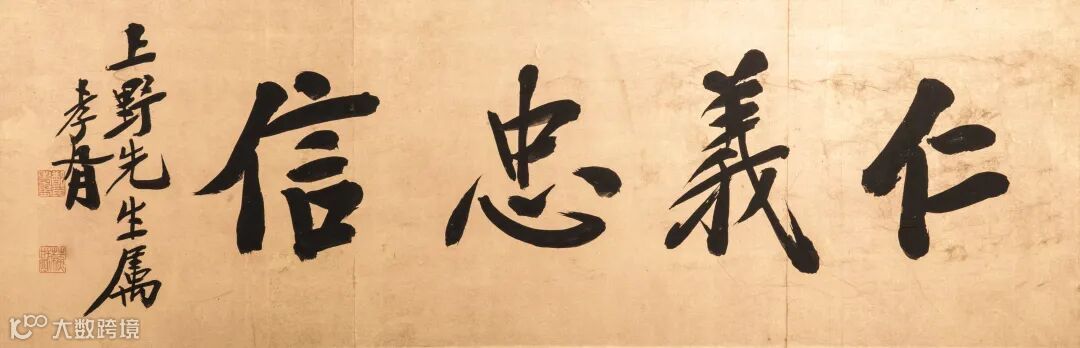 仁義忠信
上野先生属
孝胥
大数跨境